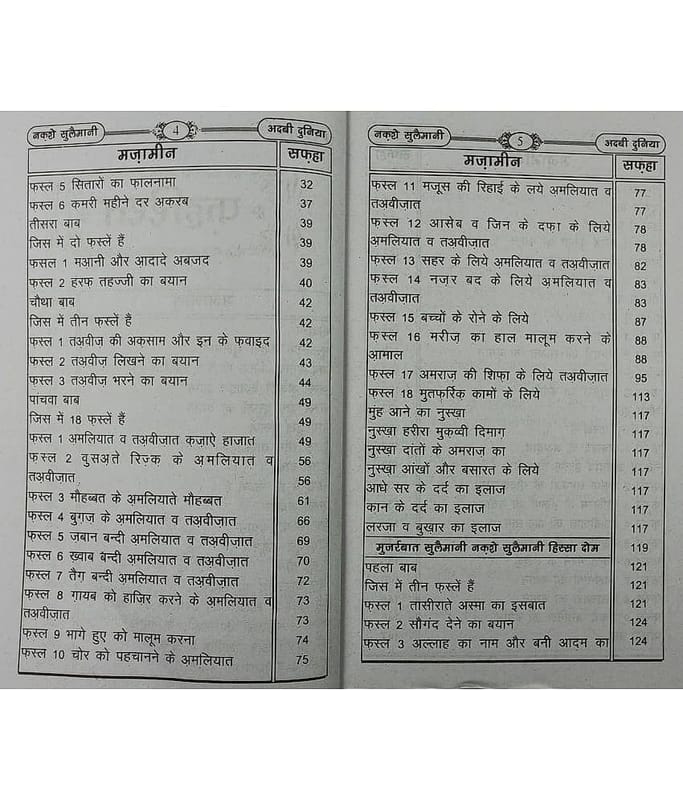 नक़्शे सुलैमानी 4 अदबी दुनिया
मज़ामीन सफ़्हा
फस्ल 5 सितारों का फालनामा 32
फस्ल 6 कमरी महीने दर अकरब 37
तीसरा बाब 39
जिस में दो फस्लें हैं 39
फसल 1 मआनी और आदादे अबजद 39
फस्ल 2 हरफ तहज्जी का बयान 40
चौथा बाब 42
जिस में तीन फस्लें हैं 42
फस्ल 1 तअवीज़ की अक़साम और इन के फ़वाइद 42
फस्ल 2 तअवीज़ लिखने का बयान 43
फस्ल 3 तअवीज़ भरने का बयान 44
पांचवा बाब 49
जिस में 18 फस्लें हैं 49
फस्ल 1 अमलियात व तअवीज़ात कज़ाऐ हाजात 49
फ़स्ल 2 वुसअ़ते रिज़्क़ के अ़मलियात व 56
तअवीज़ात 56
फस्ल 3 मौहब्बत के अ़मलियाते मौहब्बत 61
फस्ल 4 बुगज़ के अमलियात व तअवीज़ात 66
फस्ल 5 ज़बान बन्दी अमलियात व तअवीज़ात 69
फस्ल 6 ख़्वाब बन्दी अमलियात व तअवीज़ात 70
फस्ल 7 तैग़ बन्दी अमलियात व तअवीज़ात 72
फस्ल 8 ग़ायब को हाज़िर करने के अ़मलियात व 73
तअवीज़ात 73
फस्ल 9 भागे हुए को मालूम करना 74
फस्ल 10 चोर को पहचानने के अमलियात 75
नक़्शे सुलैमानी 5 अदबी दुनिया
मज़ामीन सफ़्हा
फस्ल 11 मजूस की रिहाई के लये अमलियात व 77
तअवीज़ात 77
फस्ल 12 आसेब व जिन के दफा के लिये 78
अमलियात व तअवीज़ात 78
फस्ल 13 सहर के लिये अमलियात व तअवीज़ात 82
फस्ल 14 नज़र बद के लिये अमलियात व 83
तअवीज़ात 83
फस्ल 15 बच्चों के रोने के लिये 87
फस्ल 16 मरीज़ का हाल मालूम करने के 88
आमाल 88
फस्ल 17 अमराज़ की शिफा के लिये तअवीज़ात 95
फस्ल 18 मुतफर्रिक़ कामों के लिये 113
मुंह आने का नुस्ख़ा 117
नुस्ख़ा हरीरा मुक़व्वी दिमाग़ 117
नुस्ख़ा दांतों के अमराज़ का 117
नुस्ख़ा आंखों और बसारत के लिये 117
आधे सर के दर्द का इलाज 117
कान के दर्द का इलाज 117
लरजा व बुख़ार का इलाज 117
मुजर्रबात सुलैमानी नक़्शे सुलैमानी हिस्सा दोम 119
पहला बाब 121
जिस में तीन फस्लें हैं 121
फस्ल 1 तासीराते अस्मा का इसबात 121
फ़स्ल 2 सौगंद देने का बयान 124
फस्ल 3 अल्लाह का नाम और बनी आदम का 124